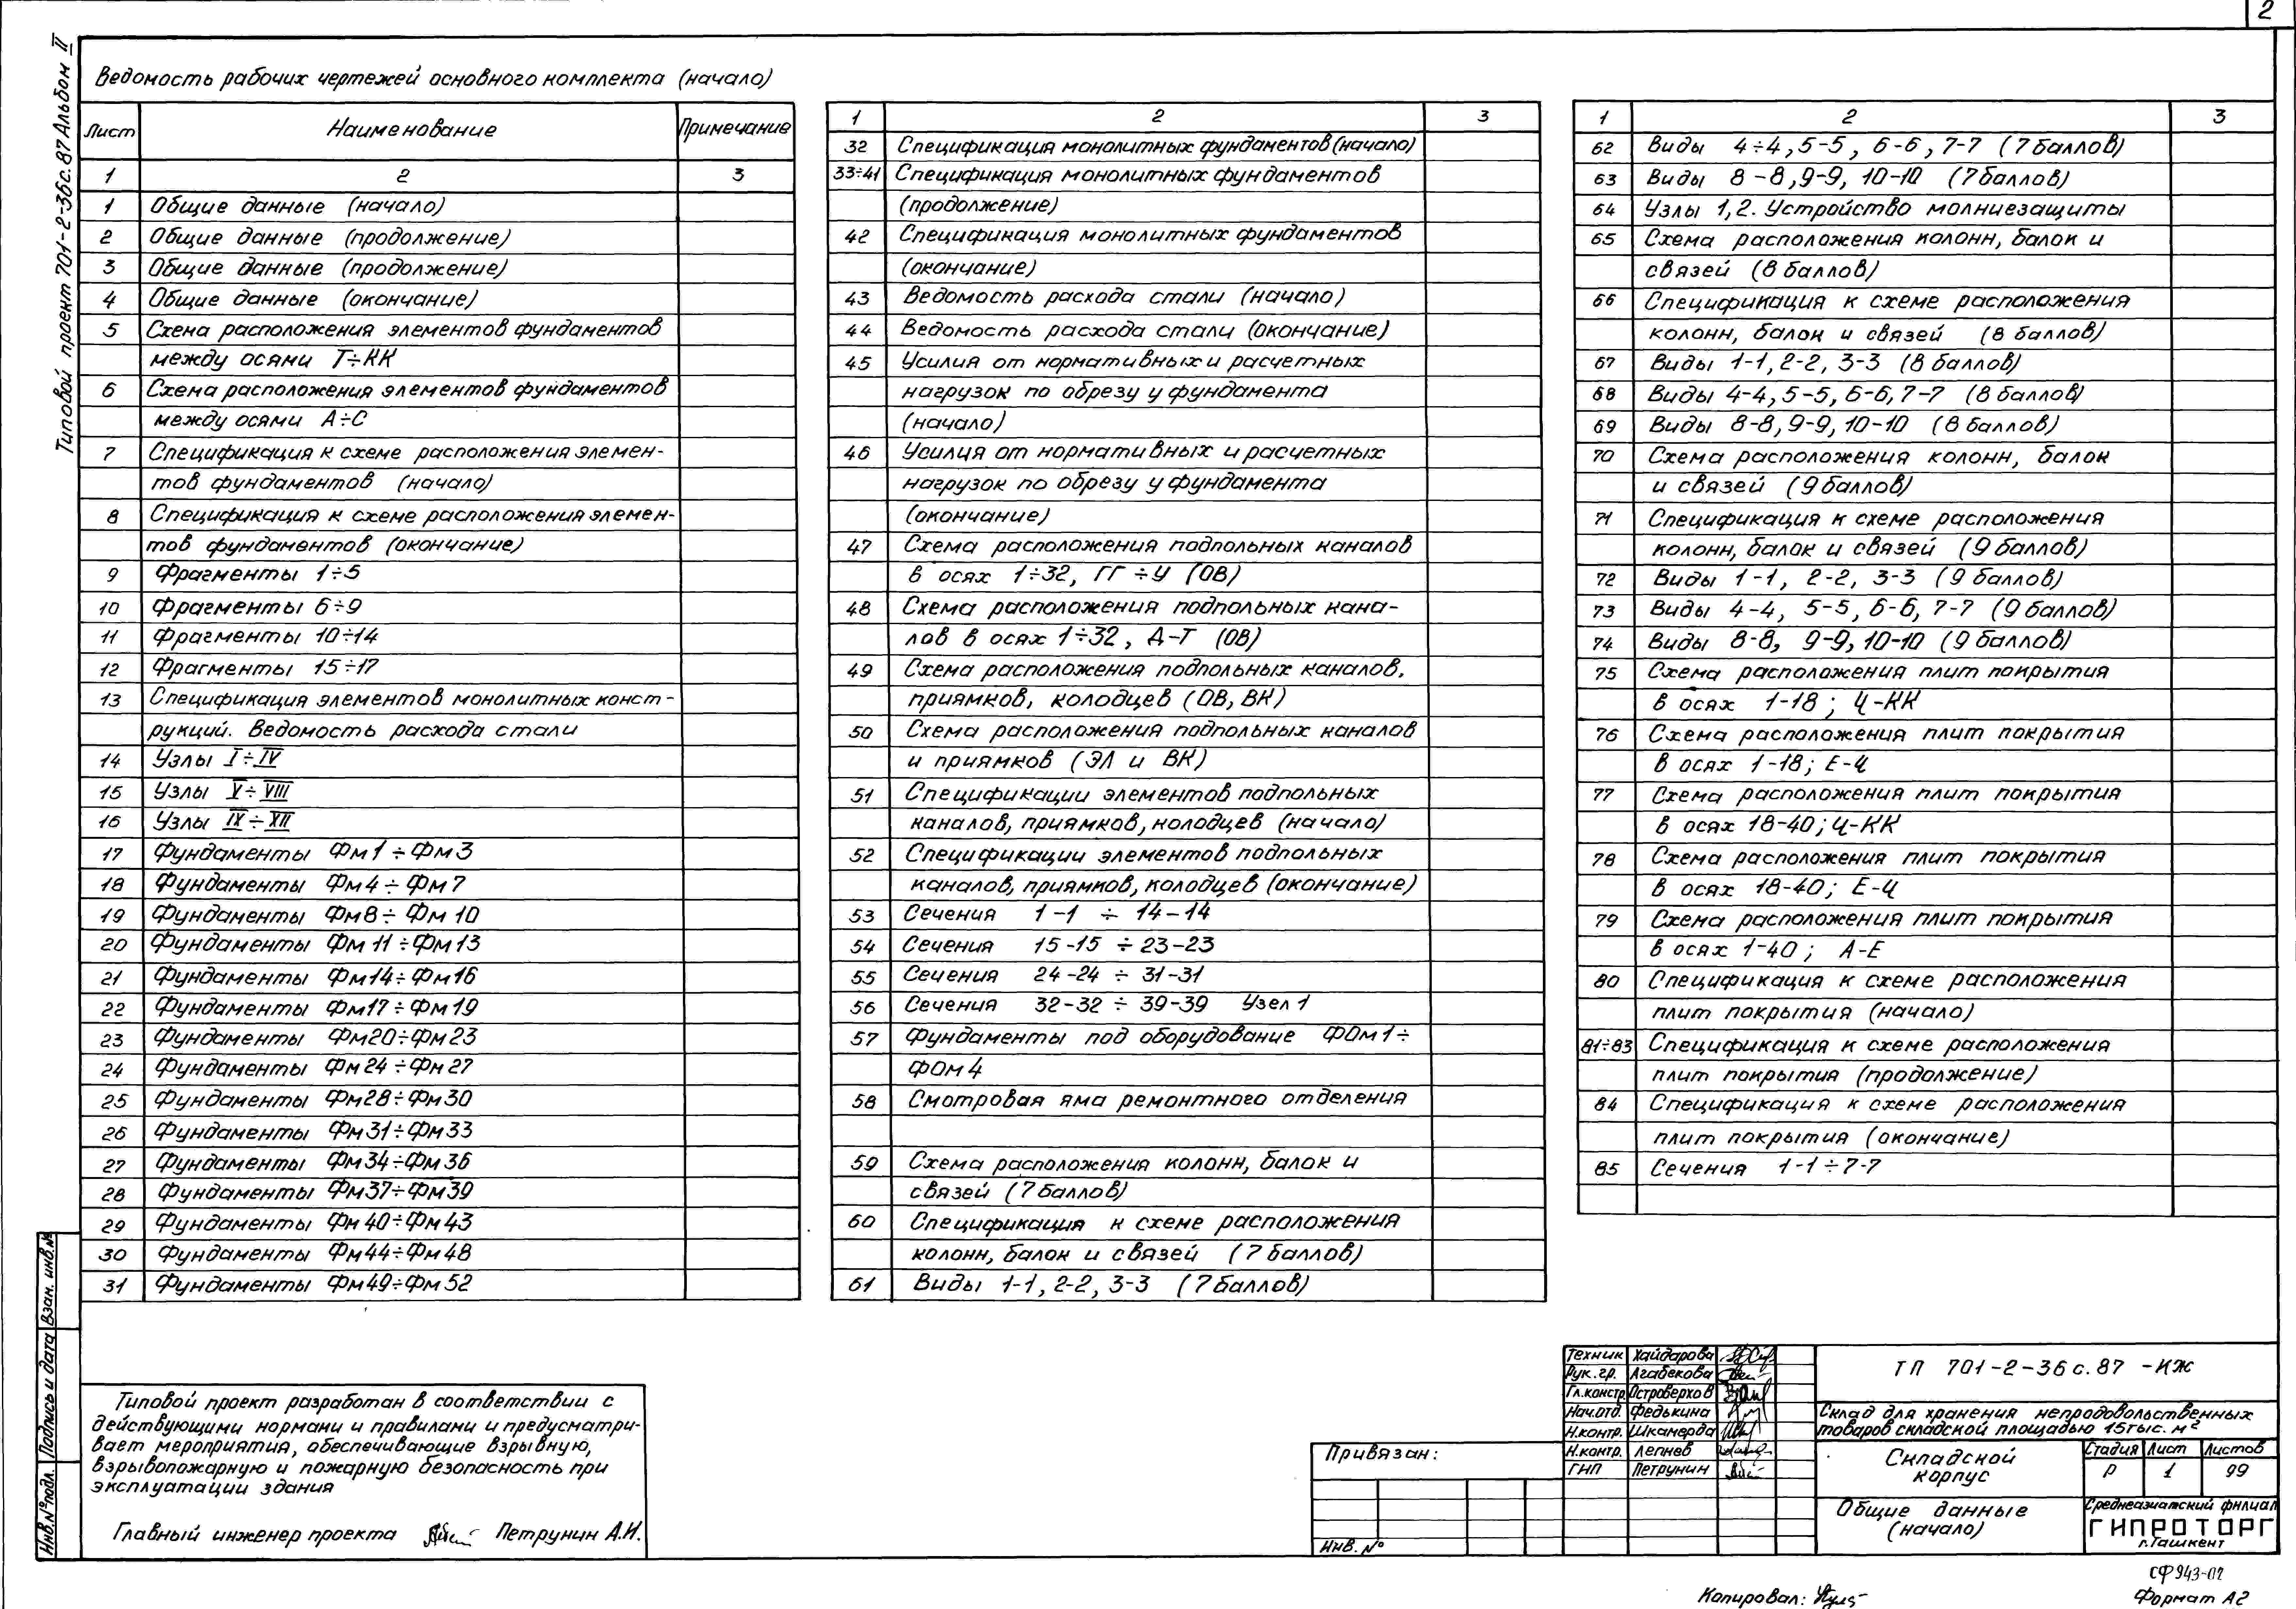 2
Типовой проект 701-2-36с.87 Альбом II
Ведомость рабочих чертежей основного комплекта (начало)
Лист Наименование Примечание
1 2 3
1 Общие данные (начало)
2 Общие данные (продолжение)
3 Общие данные (продолжение)
4 Общие данные (окончание)
5 Схема расположения элементов фундаментов
между осями Т÷КК
6 Схема расположения элементов фундаментов
между осями А÷С
7 Спецификация к схеме расположения элемен-
тов фундаментов (начало)
8 Спецификация к схеме расположения элемен-
тов фундаментов (окончание)
9 Фрагменты 1÷5
10 Фрагменты 6÷9
11 Фрагменты 10÷14
12 Фрагменты 15÷17
13 Спецификация элементов монолитных конст-
рукций. Ведомость расхода стали
14 Узлы I÷IV
15 Узлы V÷VIII
16 Узлы IX÷XII
17 Фундаменты Фм1÷Фм3
18 Фундаменты Фм4÷Фм7
19 Фундаменты Фм8÷Фм10
20 Фундаменты Фм11÷Фм13
21 Фундаменты Фм14÷Фм16
22 Фундаменты Фм17÷Фм19
23 Фундаменты Фм20÷Фм23
24 Фундаменты Фм24÷Фм27
25 Фундаменты Фм28÷Фм30
26 Фундаменты Фм31÷Фм33
27 Фундаменты Фм34÷Фм36
28 Фундаменты Фм37÷Фм39
29 Фундаменты Фм40÷Фм43
30 Фундаменты Фм44÷Фм48
31 Фундаменты Фм49÷Фм52
1 2 3
32 Спецификация монолитных фундаментов (начало)
33÷41 Спецификация монолитных фундаментов
(продолжение)
42 Спецификация монолитных фундаментов
(окончание)
43 Ведомость расхода стали (начало)
44 Ведомость расхода стали (окончание)
45 Усилия от нормативных и расчетных
нагрузок по обрезу у фундамента
(начало)
46 Усилия от нормативных и расчетных
нагрузок по обрезу у фундамента
(окончание)
47 Схема расположения подпольных каналов
в осях 1÷32, ГГ÷У (ОВ)
48 Схема расположения подпольных кана-
лов в осях 1÷32, Д-Т (ОВ)
49 Схема расположения подпольных каналов,
приямков, колодцев (ОВ, ВК)
50 Схема расположения подпольных каналов
и приямков (ЭЛ и ВК)
51 Спецификации элементов подпольных
каналов, приямков, колодцев (начало)
52 Спецификации элементов подпольных
каналов, приямков, колодцев (окончание)
53 Сечения 1-1 ÷ 14-14
54 Сечения 15-15 ÷ 23-23
55 Сечения 24-24 ÷ 31-31
56 Сечения 32-32 ÷ 39-39 Узел 1
57 Фундаменты под оборудование ФОм1÷
ФОм4
58 Смотровая яма ремонтного отделения
59 Схема расположения колонн, балок и
связей (7 баллов)
60 Спецификация к схеме расположения
колонн, балок и связей (7 баллов)
61 Виды 1-1, 2-2, 3-3 (7 баллов)
1 2 3
62 Виды 4÷4, 5-5, 6-6, 7-7 (7 баллов)
63 Виды 8-8, 9-9, 10-10 (7 баллов)
64 Узлы 1,2. Устройство молниезащиты
65 Схема расположения колонн, балок и
связей (8 баллов)
66 Спецификация к схеме расположения
колонн, балок и связей (8 баллов)
67 Виды 1-1, 2-2, 3-3 (8 баллов)
68 Виды 4-4, 5-5, 6-6, 7-7 (8 баллов)
69 Виды 8-8, 9-9, 10-10 (8 баллов)
70 Схема расположения колонн, балок
и связей (9 баллов)
71 Спецификация к схеме расположения
колонн, балок и связей (9 баллов)
72 Виды 1-1, 2-2, 3-3 (9 баллов)
73 Виды 4-4, 5-5, 6-6, 7-7 (9 баллов)
74 Виды 8-8, 9-9, 10-10 (9 баллов)
75 Схема расположения плит покрытия
в осях 1-18; Ц-КК
76 Схема расположения плит покрытия
в осях 1-18; Е-Ц
77 Схема расположения плит покрытия
в осях 18-40; Ц-КК
78 Схема расположения плит покрытия
в осях 18-40; Е-Ц
79 Схема расположения плит покрытия
в осях 1-40; А-Е
80 Спецификация к схеме расположения
плит покрытия (начало)
81÷83 Спецификация к схеме расположения
плит покрытия (продолжение)
84 Спецификация к схеме расположения
плит покрытия (окончание)
85 Сечения 1-1÷7-7
Инв.№подл. Подпись и дата Взам. инв.№
Типовой проект разработан в соответствии с
действующими нормами и правилами и предусматри-
вает мероприятия, обеспечивающие взрывную,
взрывопожарную и пожарную безопасность при
эксплуатации здания
Главный инженер проекта Петрунин А.И.
Привязан:
Инв. №
Техник Хайдарова
Рук.гр. Агабекова
Гл.констр. Островерхов
Нач.отд. Федькина
Н.контр. Шкамерда
Н.контр. Лепнев
ГИП Петрунин
ТП 701-2-36с.87 -КЖ
Склад для хранения непродовольственных
товаров складской площадью 15тыс. м²
Складской
корпус
Стадия Лист Листов
Р 1 99
Общие данные
(начало)
Среднеазиатский филиал
ГИПРОТОРГ
г.Ташкент
СФ943-02
Копировал:
Формат А2